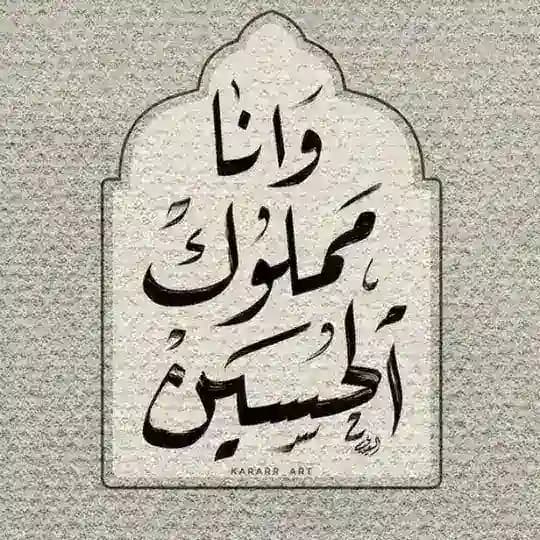 وَانا
مَملوك
الحسين
KARARR_ART